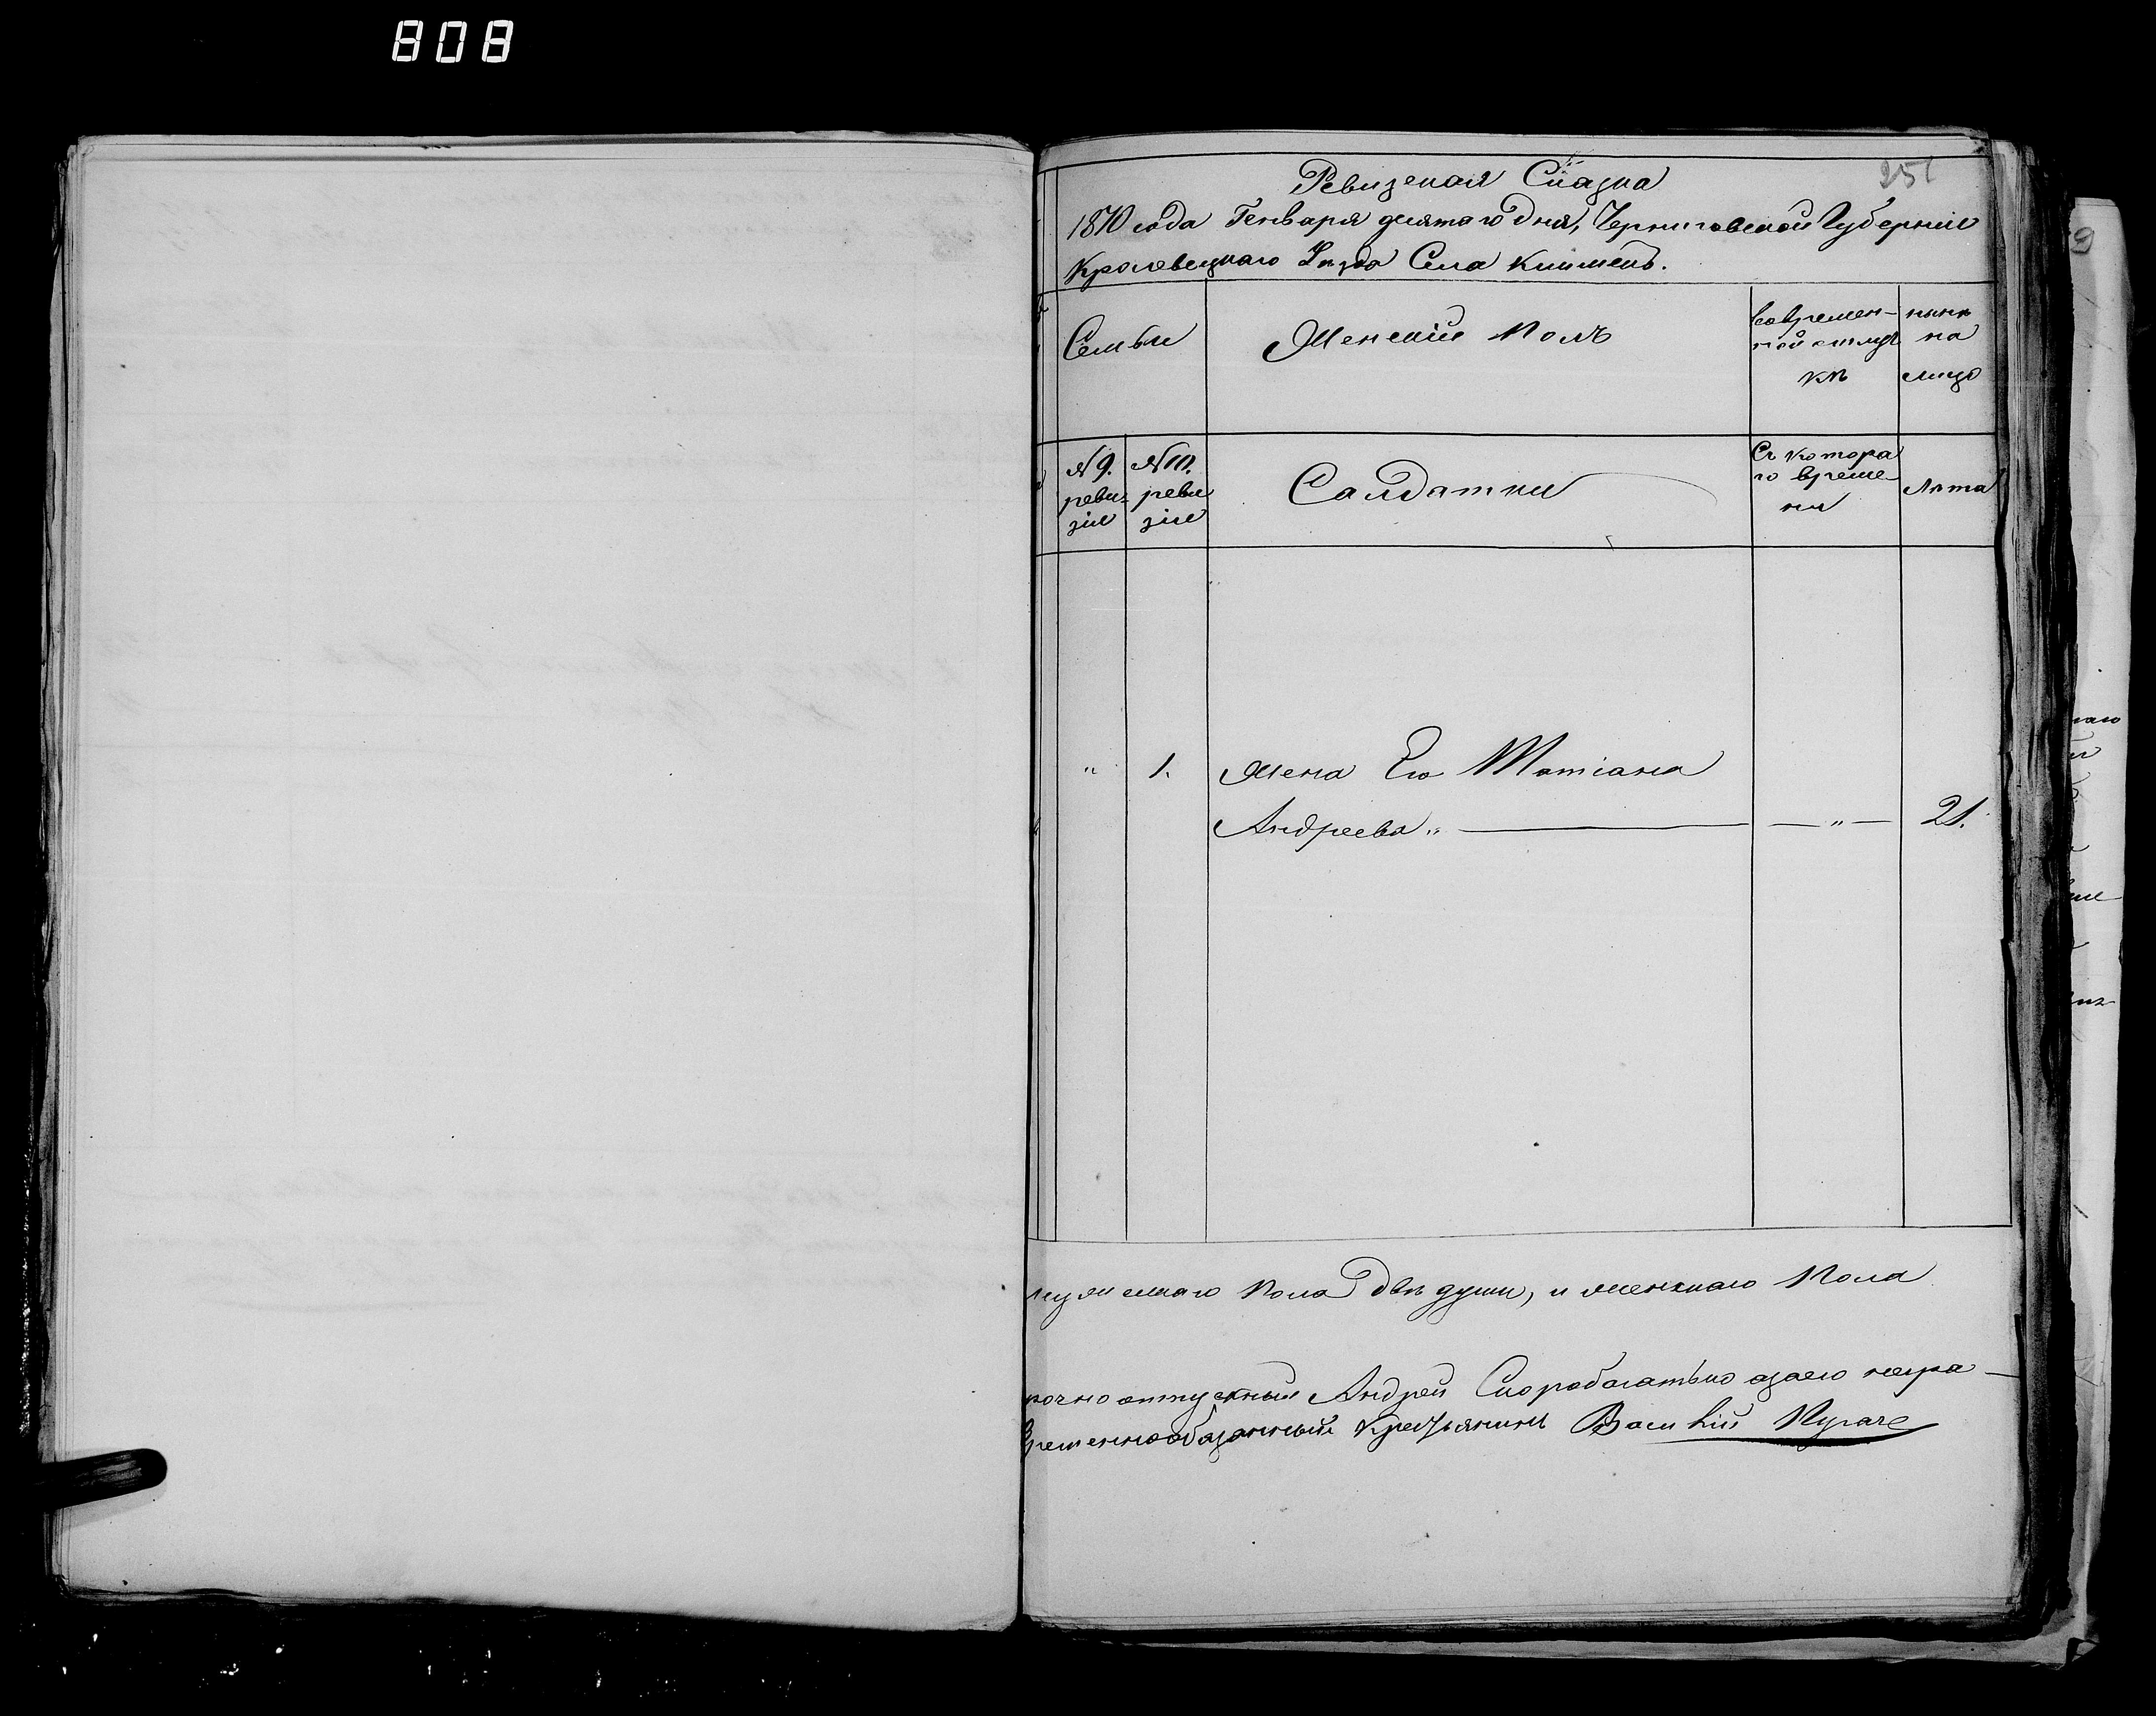 808
251
Ревизская Сказка
1870 года Генваря десятаго дня, Черниговской Губерніи
Кролевецкаго Уѣзда Села
Семьи
Женскій Полъ
Во времен-
ной отлуч
кѣ
нынѣ
на
лицо
№ 9.
реви-
зіи
№ 10.
реви
зіи
Салдатки
Съ котора
го време-
ни
Лѣта
" 1. Жена Его Татіана
Андреева " — " — 21.
мужескаго Пола двѣ души, и женскаго Пола
рочноотпускный Андрей Скоробогатько а за его негра-
временнообязанный Крестьянинъ Василій